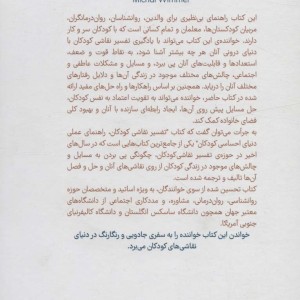 Michal Wimmer
این کتاب راهنمای بی‌نظیری برای والدین، روانشناسان، روان‌درمانگران،
مربیان کودکستان‌ها، معلمان و تمام کسانی است که با کودکان سر و کار
دارند. خواننده‌ی این کتاب می‌تواند با یادگیری تفسیر نقاشی کودکان با
دنیای درونی آنان هر چه بیشتر آشنا شود، به نقاط قوت و ضعف،
استعدادها و قابلیت‌های آنان پی ببرد، و مسایل و مشکلات عاطفی و
اجتماعی، چالش‌های مختلف موجود در زندگی آن‌ها و دلایل رفتارهای
مختلف آنان را دریابد. همچنین بر اساس راهکارها و راه‌حل‌های مفید ارائه
شده در کتاب حاضر، خواننده می‌تواند به تقویت اعتماد به نفس کودکان،
حل مسایل پیش روی آن‌ها، ایجاد رابطه‌ی سازنده با آنان و بهبود کلی
فضای خانواده کمک کند.
به جرأت می‌توان گفت که کتاب "تفسیر نقاشی کودکان، راهنمای عملی
دنیای احساسی کودکان" یکی از جامع‌ترین کتاب‌هایی است که در سال‌های
اخیر در حوزه‌ی تفسیر نقاشی کودکان، چگونگی پی بردن به مسایل و
چالش‌های موجود در زندگی کودکان از روی نقاشی‌های آنان و حل و فصل
آن‌ها تألیف و ترجمه شده است.
کتاب تحسین شده از سوی خوانندگان، به ویژه اساتید و متخصصان حوزه
روانشناسی، روان‌درمانی، مشاوره، و مددکاری اجتماعی از دانشگاه‌های
معتبر جهان همچون دانشگاه ساسکس انگلستان و دانشگاه کالیفرنیای
جنوبی آمریکا.
خواندن این کتاب خواننده را به سفری جادویی و رنگارنگ در دنیای
نقاشی‌های کودکان می‌برد.